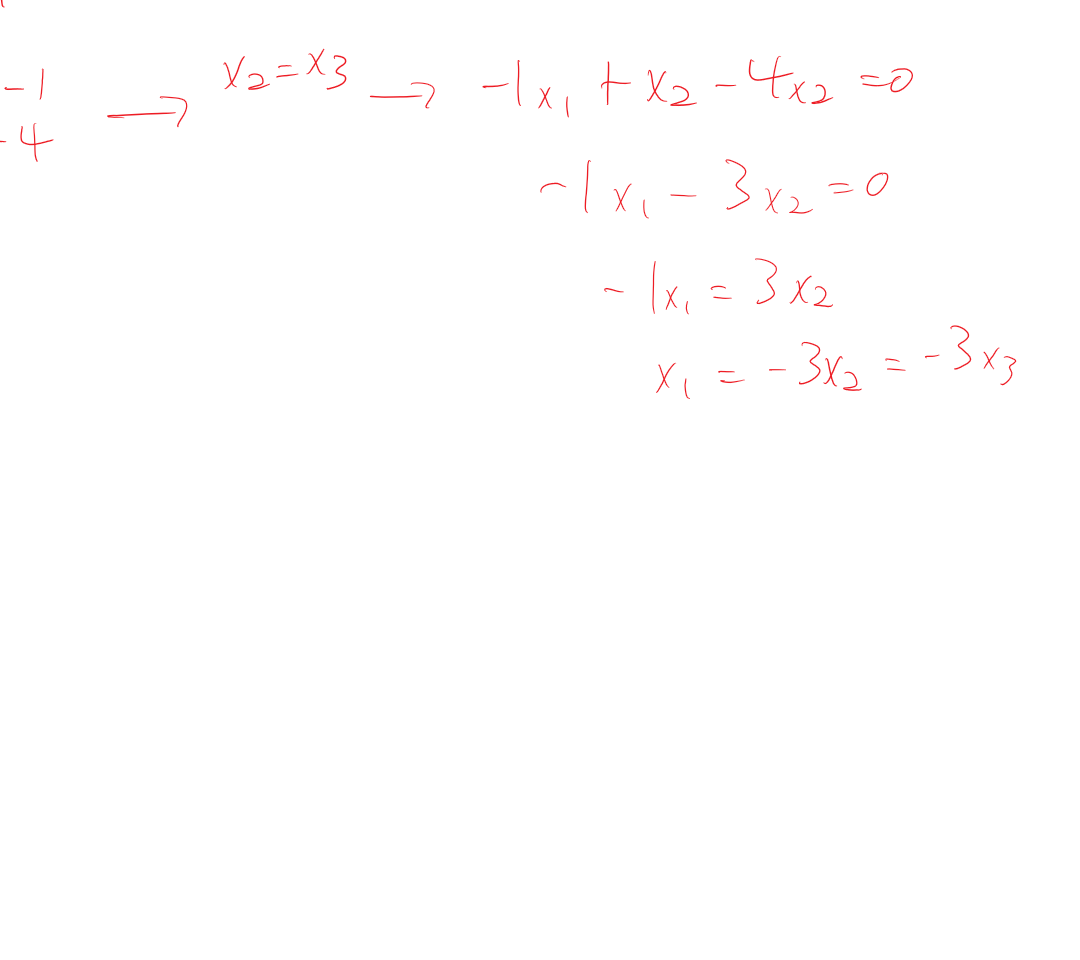 -1
-4 → x₂ = x₃ → -1x₁ + x₂ - 4x₂ = 0
-1x₁ - 3x₂ = 0
-1x₁ = 3x₂
x₁ = -3x₂ = -3x₃